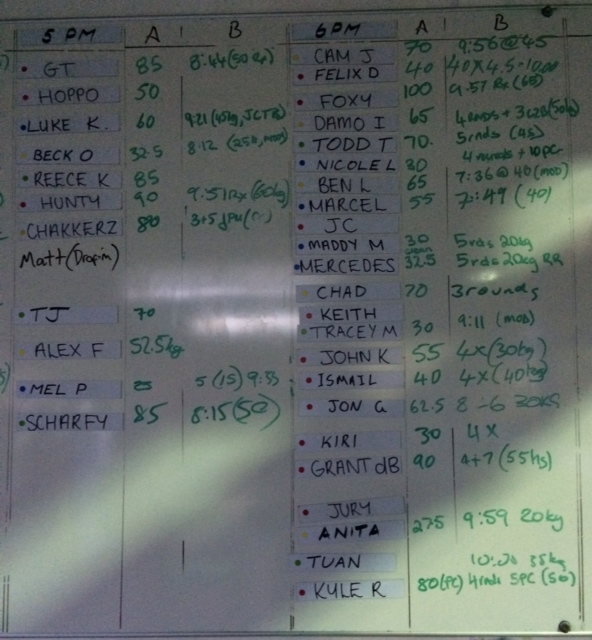 5 PM A B
GT 85 8:44 (50 Rx)
HOPPO 50
LUKE K. 60 9:21
BECK O 32.5 8:12
REECE K 85
HUNTY 90 9:51 Rx (60kg)
CHAKKERZ 80
Matt (Drop-in)
TJ 70
ALEX F 52.5kg
MEL P 5 (15) 9:53
SCHARFY 85 8:15 (50)
6 PM A B
CAM J 70 9:56 @ 45
FELIX D 40
FOXY 100 9.57 Rx (65)
DAMO I 65
TODD T 70. 5rnds (45)
NICOLE L 30 4 rounds + 10 PC
BEN L 65 7:36 @ 40 (mod)
MARCEL 55 7:49 (40)
JC
MADDY M 30 5rds 20kg
MERCEDES 32.5 5rds 20kg
CHAD 70 3 rounds
KEITH
TRACEY M 30 9:11 (mod)
JOHN K 55 4x (30kg)
ISMAIL 40 4x (40kg)
JON G 62.5
KIRI 30 4x
GRANT dB 90 4+7 (55kg)
JURY
ANITA 27.5 9:59 20kg
TUAN 35kg
KYLE R 80 (PC) 4 rnds 5PC (50)